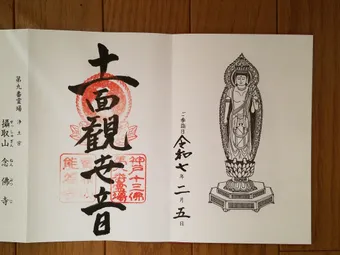 ご参詣日 令和七年二月五日
神戸十三佛
十一面觀世音
第九番霊場
浄土宗
攝取山 念佛寺